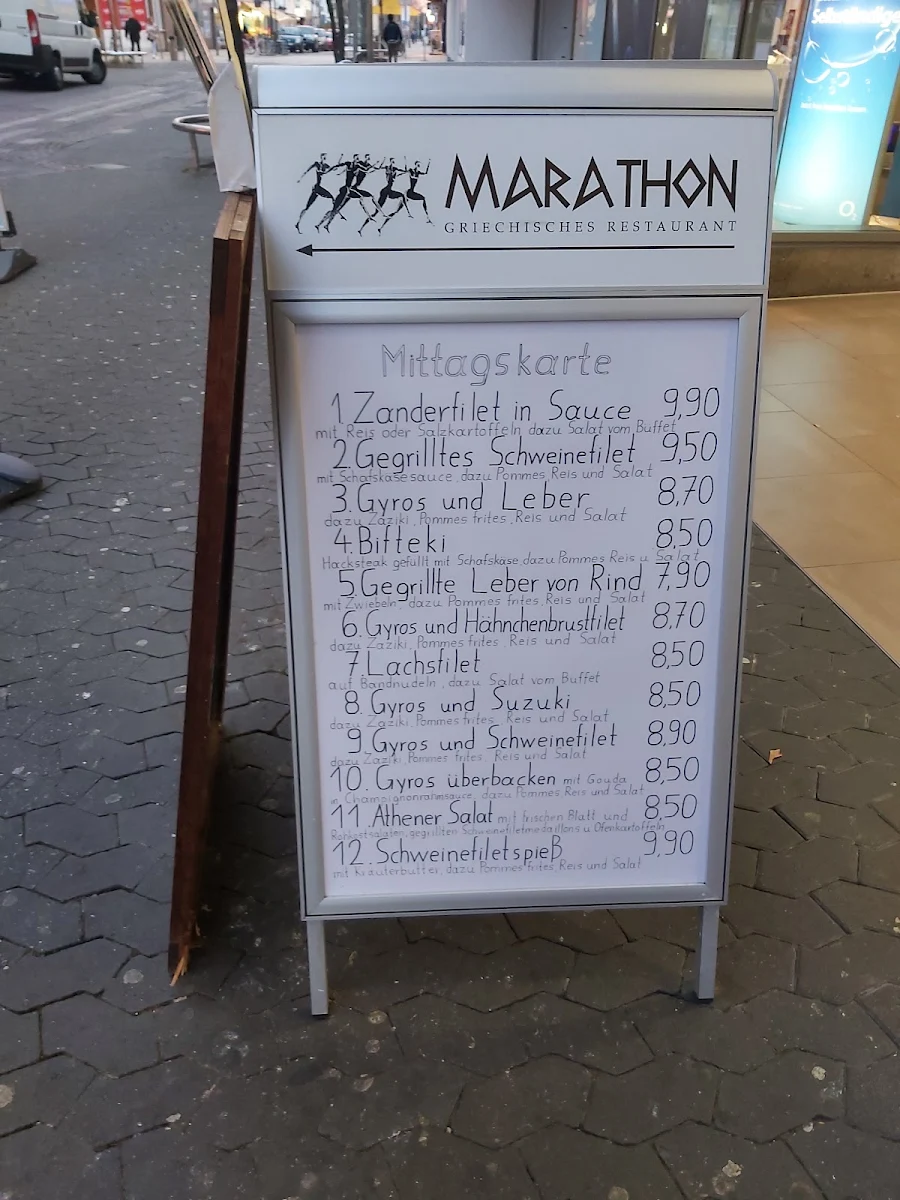 MARATHON
GRIECHISCHES RESTAURANT
Mittagskarte
1. Zanderfilet in Sauce 9,90
mit Reis oder Salzkartoffeln dazu Salat vom Buffet
2. Gegrilltes Schweinefilet 9,50
mit Schafskäsesauce, dazu Pommes Reis und Salat
3. Gyros und Leber 8,70
dazu Zaziki, Pommes frites, Reis und Salat
4. Bifteki 8,50
Hacksteak gefüllt mit Schafskäse, dazu Pommes Reis u. Salat
5. Gegrillte Leber von Rind 7,90
mit Zwiebeln, dazu Pommes frites, Reis und Salat
6. Gyros und Hähnchenbrustfilet 8,70
dazu Zaziki, Pommes frites, Reis und Salat
7. Lachsfilet 8,50
auf Bandnudeln, dazu Salat vom Buffet
8. Gyros und Suzuki 8,50
dazu Zaziki, Pommes frites, Reis und Salat
9. Gyros und Schweinefilet 8,90
dazu Zaziki, Pommes frites, Reis und Salat
10. Gyros überbacken mit Gouda 8,50
in Champignonrahmsauce, dazu Pommes Reis und Salat
11. Athener Salat mit frischen Blatt und 8,50
Rohkostsalaten, gegrillten Schweinefiletmedaillons u. Ofenkartoffeln
12. Schweinefiletspieß 9,90
mit Kräuterbutter, dazu Pommes frites, Reis und Salat
O2